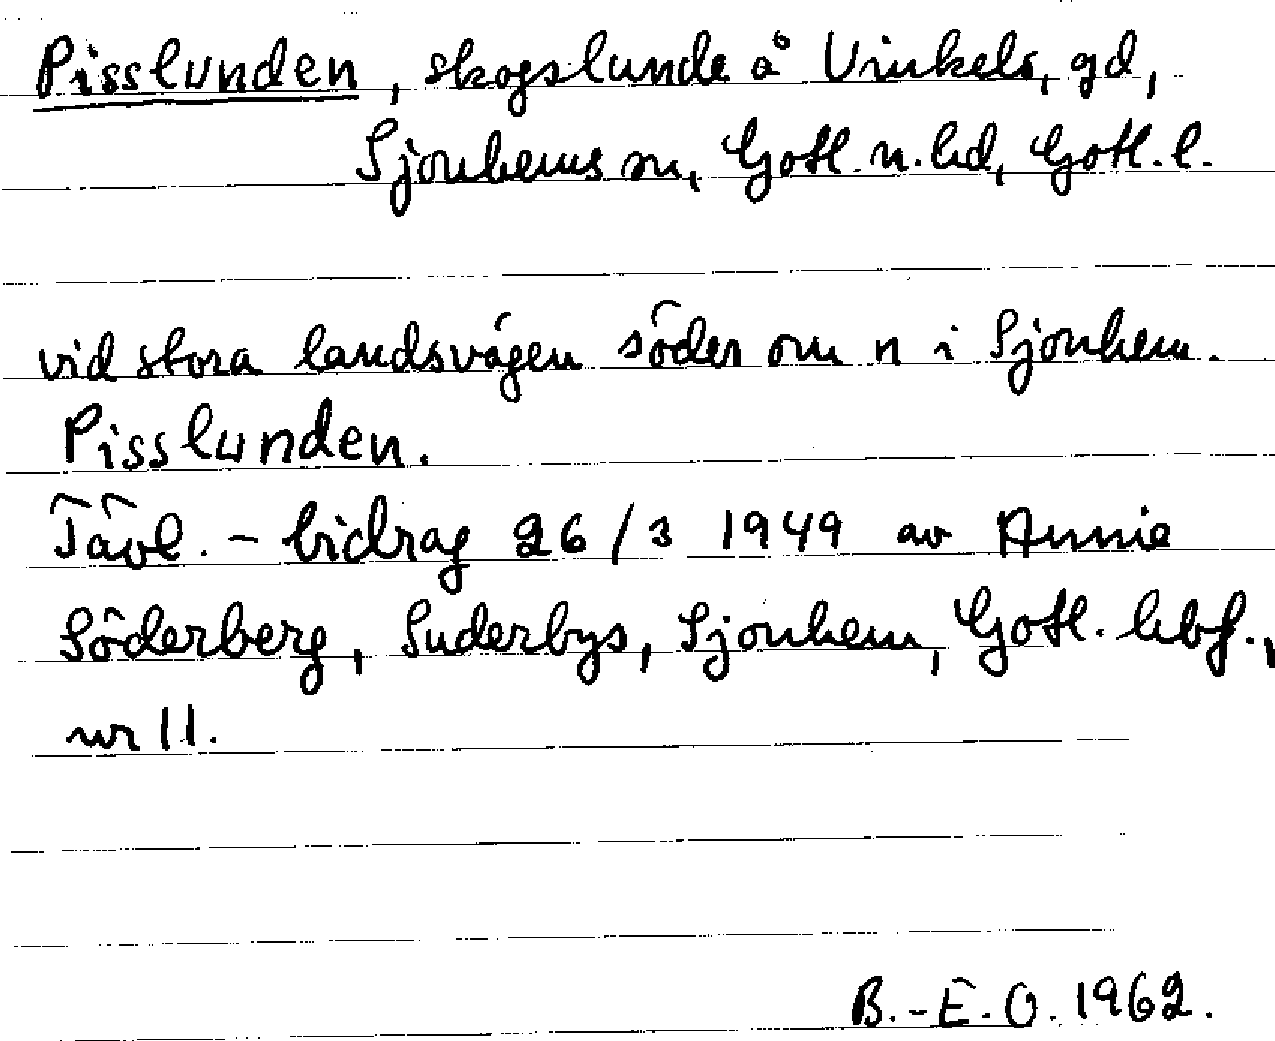 Pisslunden, skogslunde å Vinkels, gd,
Sjonhems sn, Gotl. n. hd, Gotl. l.
vid stora landsvägen söder om n i Sjonhem.
Pisslunden.
Tävl. - bidrag 26/3 1949 av Annie
Söderberg, Suderbys, Sjonhem, Gotl. hbf.,
nr 11.
B.-E.O. 1962.